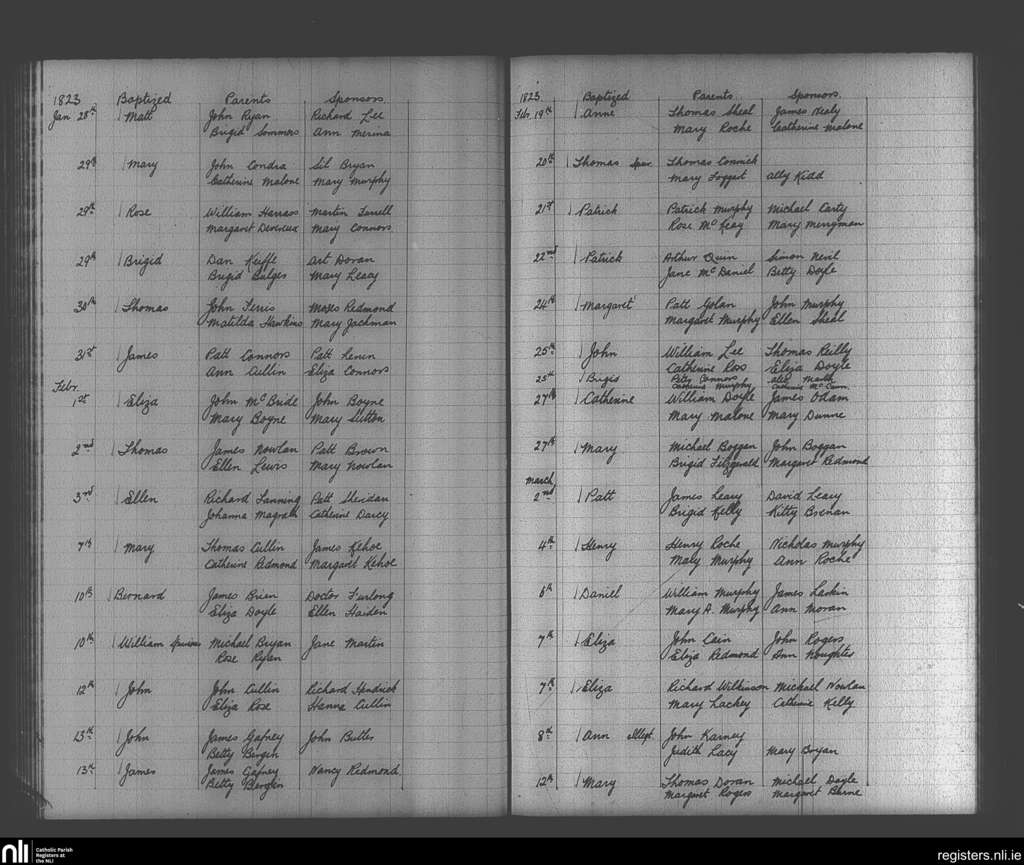 1823 Baptized Parents Sponsors
Jan 28th Matt John Ryan Richard Lee
Brigid Sommors Ann
29th Mary John Condra Sil Bryan
Catherine Malone Mary Murphy
29th Rose William Harrass Martin Farrell
Margaret Devereux Mary Connors
29th Brigid Dan Keiffe Art Doran
Brigid Bulger Mary Leacy
30th Thomas John Ferris Moses Redmond
Matilda Hawkins Mary Jackman
31st James Patt Connors Patt
Ann Cullin Eliza Connors
Febr.
1st Eliza John McBride John Boyne
Mary Boyne Mary Sutton
2nd Thomas James Nowlan Patt Brown
Ellen Lewis Mary Nowlan
3rd Ellen Richard Lanning Patt Sheridan
Johanna Magrath Catherine Darcy
7th Mary Thomas Cullin James Kehoe
Catherine Redmond Margaret Kehoe
10th Bernard James Brien Doctor Furlong
Eliza Doyle Ellen Haiden
10th William Spurious Michael Bryan Jane Martin
Rose Ryan
12th John John Cullin Richard Hendrick
Eliza Rose Hanna Cullin
13th John James Gafney John Butler
Betty Bergin
13th James James Gafney Nancy Redmond
Betty Bergin
1823 Baptized Parents Sponsors
Febr. 19th Anne Thomas Sheal James Healy
Mary Roche Catherine Malone
20th Thomas Spur. Thomas Connick
Mary Foggart Ally Kidd
21st Patrick Patrick Murphy Michael Carty
Rose McKeay Mary Merryman
22nd Patrick Arthur Quin Simon Nevil
Jane McDaniel Betty Doyle
24th Margaret Patt Golan John Murphy
Margaret Murphy Ellen Sheal
25th John William Lee Thomas Reilly
Catherine Ross Eliza Doyle
25th Brigid Peter Connors
Catherine Murphy Catherine
27th Catherine William Doyle James Odam
Mary Malone Mary Dunne
27th Mary Michael Boggan John Boggan
Brigid Fitzgerald Margaret Redmond
March
2nd Patt James Leary David Leary
Brigid Kelly Kitty Brenan
4th Henry Henry Roche Nicholas Murphy
Mary Murphy Ann Roche
6th Daniel William Murphy James Larkin
Mary A. Murphy Ann Moran
7th Eliza John Cain John Rogers
Eliza Redmond Ann Noughter
7th Eliza Richard Wilkinson Michael Nowlan
Mary Lackey Catherine Kelly
8th Ann Illegt. John Karney
Judith Lacy Mary Bryan
12th Mary Thomas Doran Michael Doyle
Margaret Rogers Margaret Byrne
nli Catholic Parish
Registers at
the NLI
registers.nli.ie